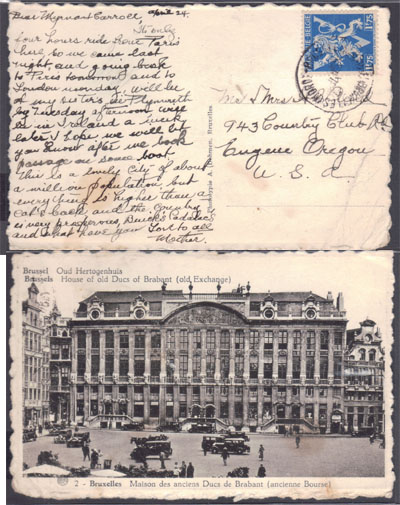 Dear Wynnant Carroll
april 24.
Its only
four hours ride from Paris
here so we came last
night and going back
to Paris tomorrow and to
London monday, will be
at my sisters in Plymouth
by Tuesday afternoon will
be in Ireland a week
later I hope we will let
you know after we book
passage on some boat
This is a lovely City of about
a million population but
everything is higher than a
cat's back and the country
is very prosperous, Buicks Cadillacs
and what have you Love to all
Mother.
BELGIE 1F75
Bruxelles
Mr & Mrs
943 Country Club Rd
Eugene Oregon
U. S. A.
Brussel Oud Hertogenhuis
Brussels House of old Ducs of Brabant (old Exchange)
2 - Bruxelles Maison des anciens Ducs de Brabant (ancienne Bourse)